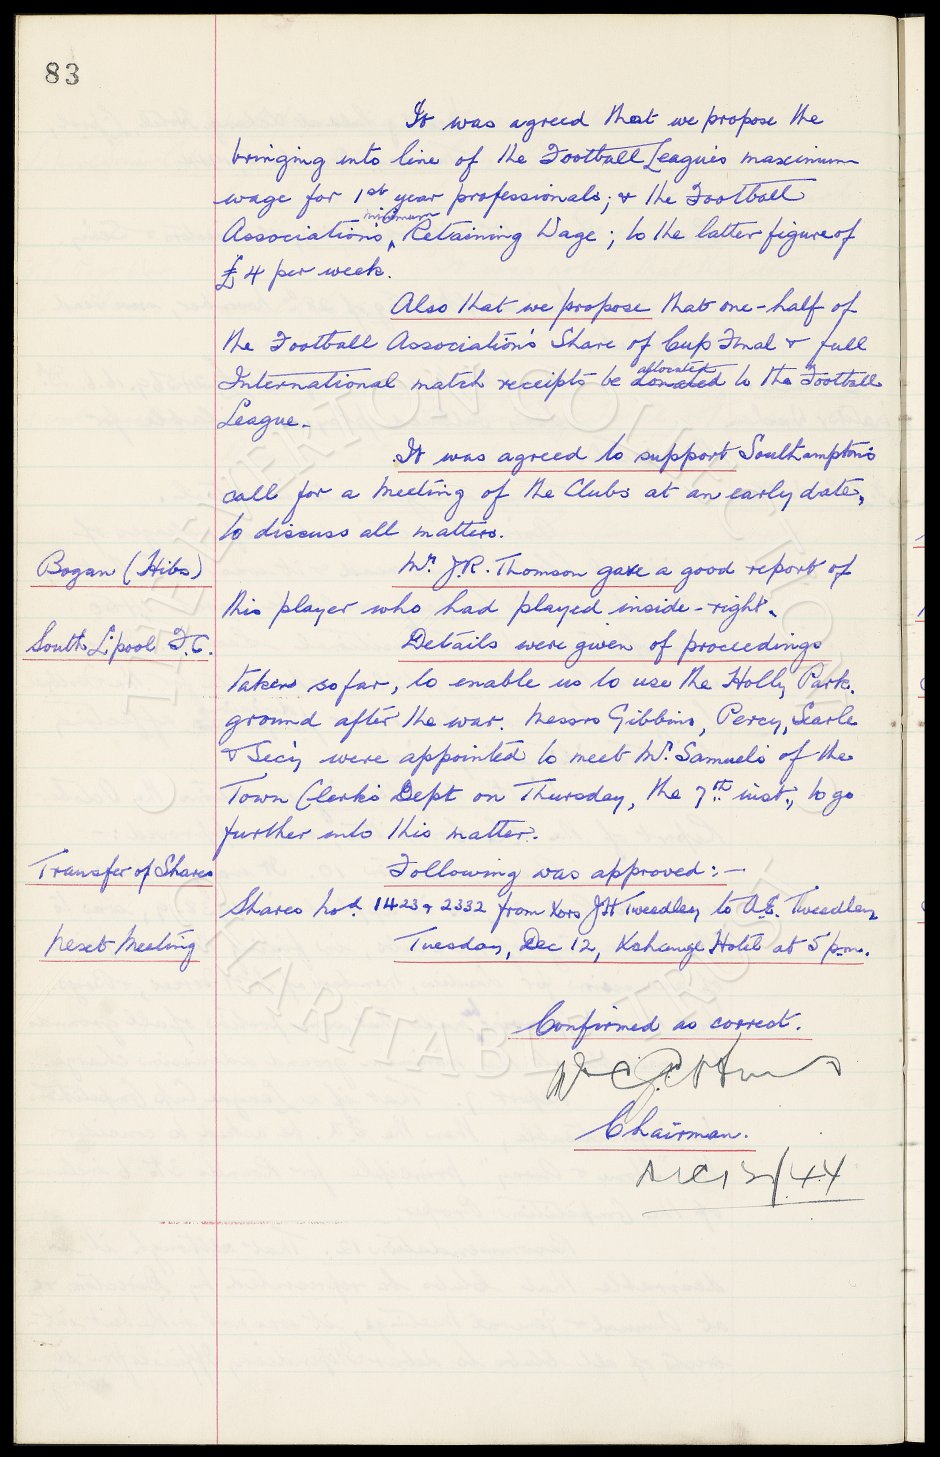 83
It was agreed that we propose the
bringing into line of the Football League's maximum
wage for 1st year professionals; & the Football
minimum
Association's Retaining Wage; to the latter figure of
£4 per week.
Also that we propose that one-half of
the Football Association's Share of Cup Final & full
allocated
International match receipts be donated to the Football
League.
It was agreed to support Southampton's
call for a meeting of the Clubs at an early date,
to discuss all matters.
Bogan (Hibs) Mr. J.R. Thomson gave a good report of
this player who had played inside-right.
South L'pool F.C. Details were given of proceedings
taken so far, to enable us to use the Holly Park
ground after the war. Messrs Gibbins, Percy, Searle
& Sec'y were appointed to meet Mr. Samuels of the
Town Clerk's Dept on Thursday, the 7th inst., to go
further into this matter.
Transfer of Shares Following was approved:-
Shares Nos. 1423 & 2332 from Xors J H Tweedley to A.E. Tweedley
Next Meeting Tuesday, Dec 12, Xchange Hotel at 5 p.m.
Confirmed as correct.
Chairman.
Dec 12/44
THE EVERTON COLLECTION
CHARITABLE TRUST